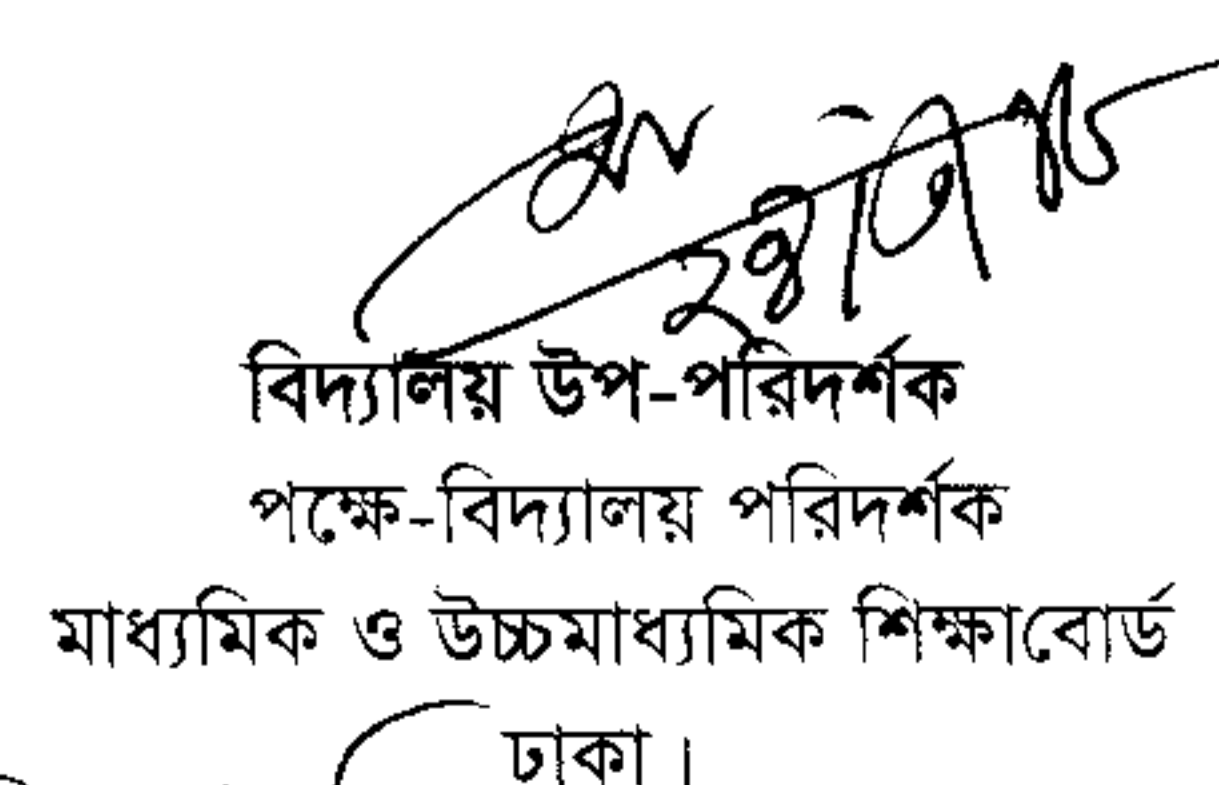 বিদ্যালয় উপ-পরিদর্শক
পক্ষে-বিদ্যালয় পরিদর্শক
মাধ্যমিক ও উচ্চমাধ্যমিক শিক্ষাবোর্ড
ঢাকা।